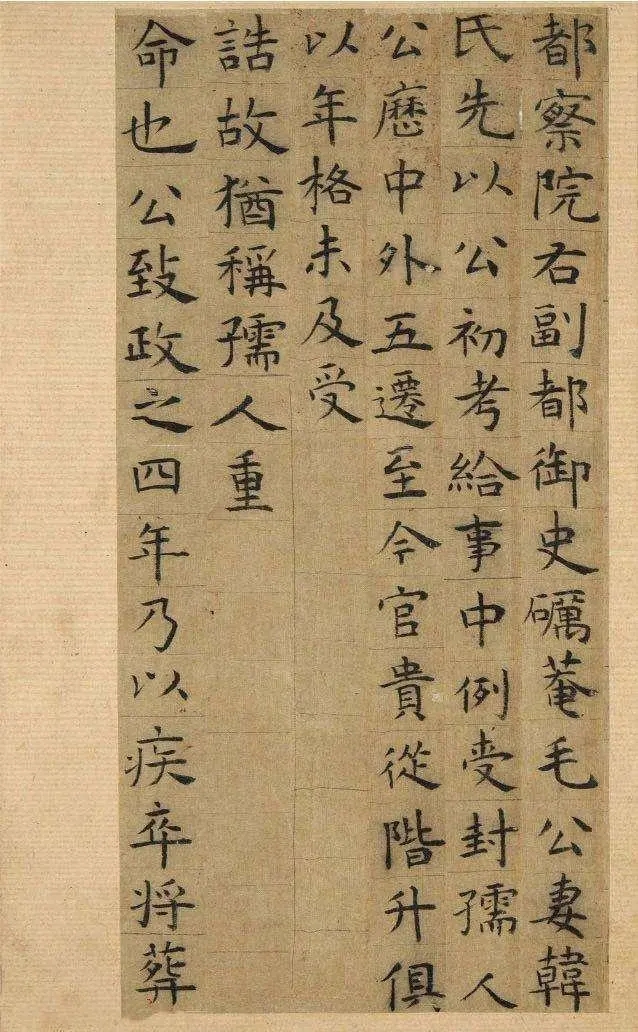 都察院右副都御史礪菴毛公妻韓
氏先以公初考給事中例受封孺人
公歷中外五遷至今官貴從階升俱
以年格未及受
誥故猶稱孺人重
命也公致政之四年乃以疾卒將葬